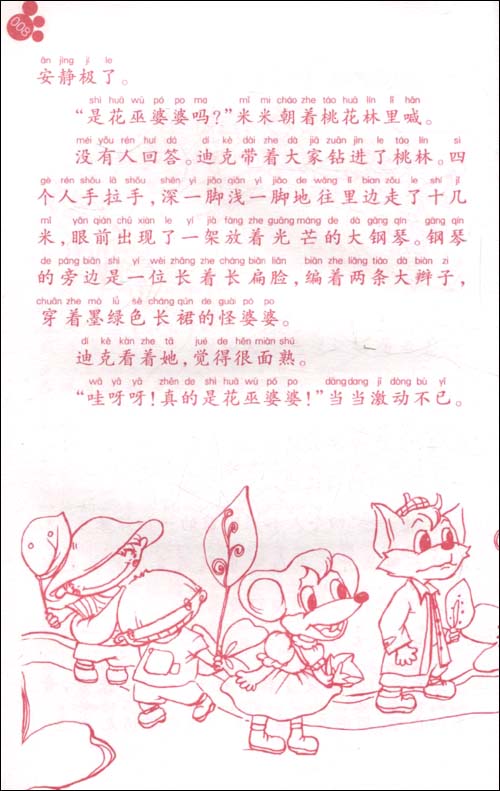 008
ān jìng jí le
安静极了。
shì huā wū pó po ma mǐ mi cháo zhe táo huā lín lǐ hǎn
“是花巫婆婆吗?”米米朝着桃花林里喊。
méi yǒu rén huí dá dí kè dài zhe dà jiā zuān jìn le táo lín sì
没有人回答。迪克带着大家钻进了桃林。四
gè rén shǒu lā shǒu shēn yì jiǎo qiǎn yì jiǎo de wǎng lǐ bian zǒu le shí jǐ
个人手拉手,深一脚浅一脚地往里边走了十几
mǐ yǎn qián chū xiàn le yí jià fàng zhe guāng máng de dà gāng qín gāng qín
米,眼前出现了一架放着光芒的大钢琴。钢琴
de páng biān shì yí wèi zhǎng zhe cháng biǎn liǎn biān zhe liǎng tiáo dà biàn zi
的旁边是一位长着长扁脸,编着两条大辫子,
chuān zhe mò lǜ sè cháng qún de guài pó po
穿着墨绿色长裙的怪婆婆。
dí kè kàn zhe tā jué de hěn miàn shú
迪克看着她,觉得很面熟。
wā yā yā zhēn de shì huā wū pó po dāng dang jī dòng bù yǐ
“哇呀呀!真的是花巫婆婆!”当当激动不已。